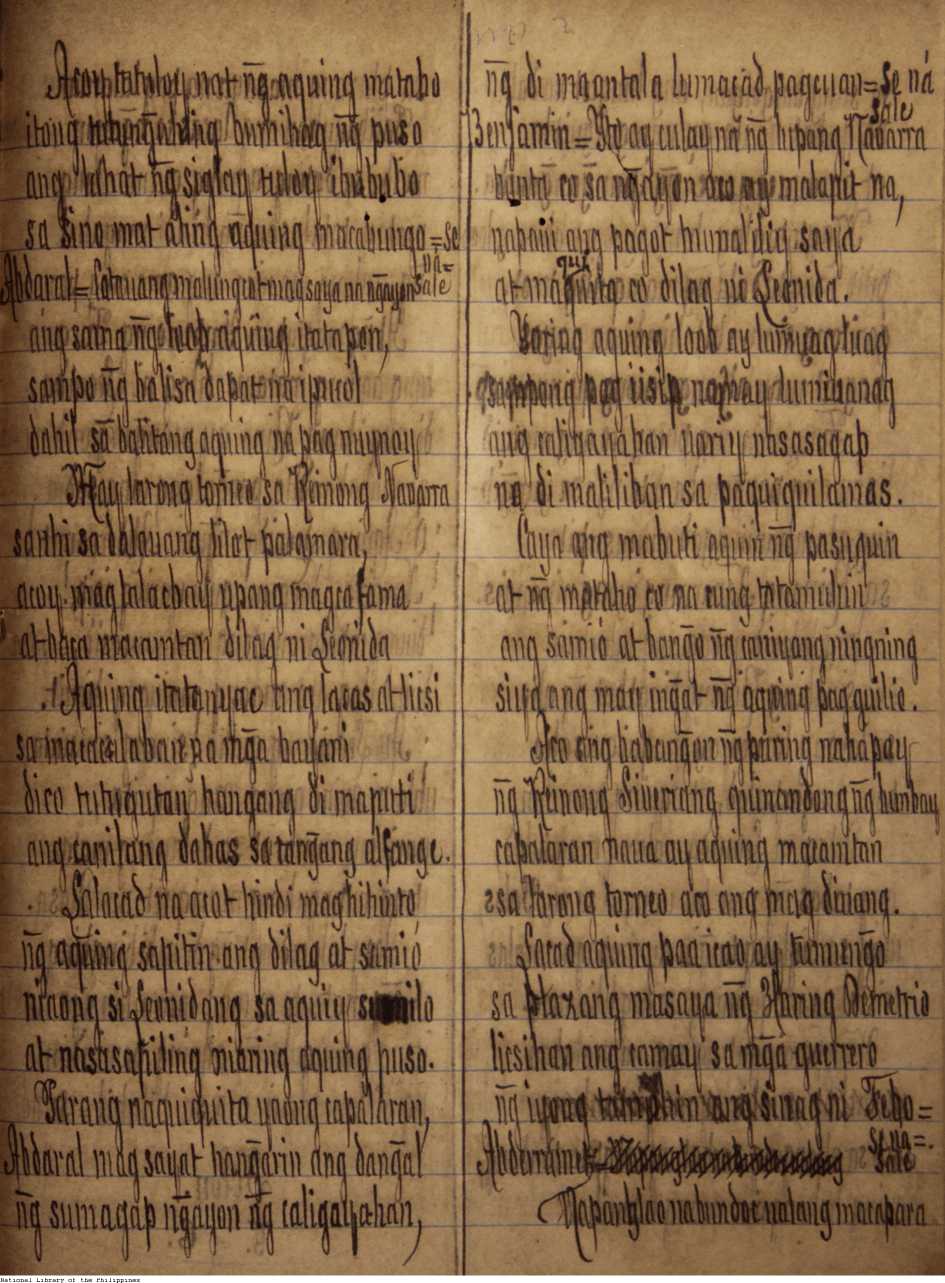 Acoy tutuloy nat ñg aquing matabo
itong bumihag ñg puso
ang lahat ñg siglay tuloy ibububo
sa sino mat aling aquing macabungo = se na = sale
Abdaral = Catauang malungcot magsaya na ngayon
ang sama ñg loob aquing itatapon,
sampo ñg balisa dapat na ipucol
dahil sa balitang aquing na pag nuynoy
May larong torneo sa Reinong Navarra
sanhi sa dalauang lilot palamara,
acoy magtalacbay upang magcafama
at baca macamtan dilag ni Leonida
Aquing itatanyag ang lacas at licsi
sa macacalaban na mga bayani
dico tutugutan hangang di maputi
ang canilang dahas sa tangang alfange.
Lalacad na acot hindi maghihinto
ñg aquing sapitin ang dilag at samio
niaong si Leonidang sa aquiy sumilo
at nasasapiling niaring aquing puso.
Parang naquiquita yaong capalaran,
Abdaral mag sayat hangarin ang dangal
ñg sumagap ngayon ñg caligayahan,
ñg di maantala lumacad pagcuan = se na sale
Benjamin = Ito ay culay na ñg lupang Navarra
banta co sa ngayon aco ay malapit na,
napaui ang pagot humaldig saya
at maquiquita co dilag ni Leonida.
Yaring aquing loob ay lumuag luag
sampong pag iisip namay lumiuanag
ang caligayahan uariy nasasagap
na di malilihan sa paquiquilamas.
Caya ang mabuti aquin ñg pasuquin
at ñg matabo co na cung tatamuhin
ang samio at bango ñg caniyang ningning
siya ang may ingat ñg aquing pag guilio.
Aco ang babangon ñg puring nahapay
ñg Reinong Siveriang quinandong ñg lumbay
capalaran naua ay aquing macamtan
sa larong torneo aco ang mag diuang.
Lacad aquing paa icao ay tumungo
sa plazang masaya ñg Haring Demetrio
licsihan ang camay sa mga guerrero
ñg iyong ang sinag ni Febo = se na = sale
Abderramen =
Napanglao na bundoc ualang macapara
National Library of the Philippines